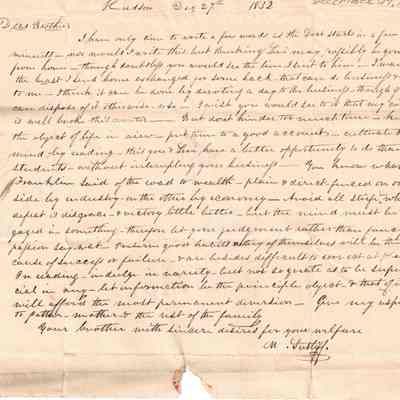 Hudson Dec 27th 1832
Dear Brother
I have only time to write a few words as the Doct starts in a few
minutes - nor would I write this but thinking Levi may possibly be gone
from home - though doubtless you would see the him I sent to him - I want
the beast I send home exchanged for some hack that can do business &
to me - I think it can be done by devoting a day to the business though if
can dispose of it otherwise do so - I wish you would see to it that my co
is well broke this winter - But dont hinder too much time - k
the object of life in view - put time to a good account - cultivate
mind by reading - this you & Levi have a better opportunity to do than
students - without interrupting your business - You know what
Franklin said of the road to wealth - plain & direct fenced on o
side by industry on the other by economy - Avoid all strife wh
defeat is disgrace - & victory little better - but the mind must be
gaged in something - therefore let your judgment rather than
passion say what - Pursue good habits as they of themselves will be the
cause of success or failure - & are besides difficult to
In reading - indulge in variety but not so great as to be super
cial in any - let information be the principle object - & that of i
will afford the most permanent diversion - Give my resp
to father - mother & the rest of the family
Your brother with sincere desires for your welfare
M. Sutliff